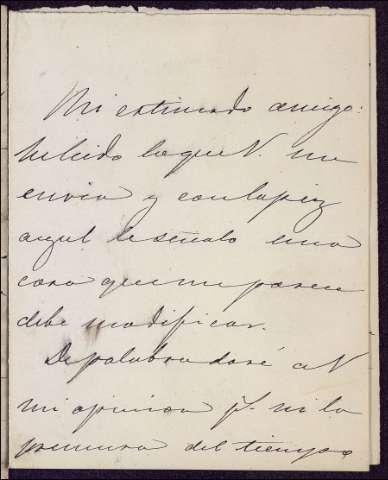 Mi estimado amigo:
he leido lo que V. me
envia y con lapiz
azul le señalo una
cosa que me parece
debe modificar.
De palabra daré a V
mi opinion pr. ni la
premura del tiempo